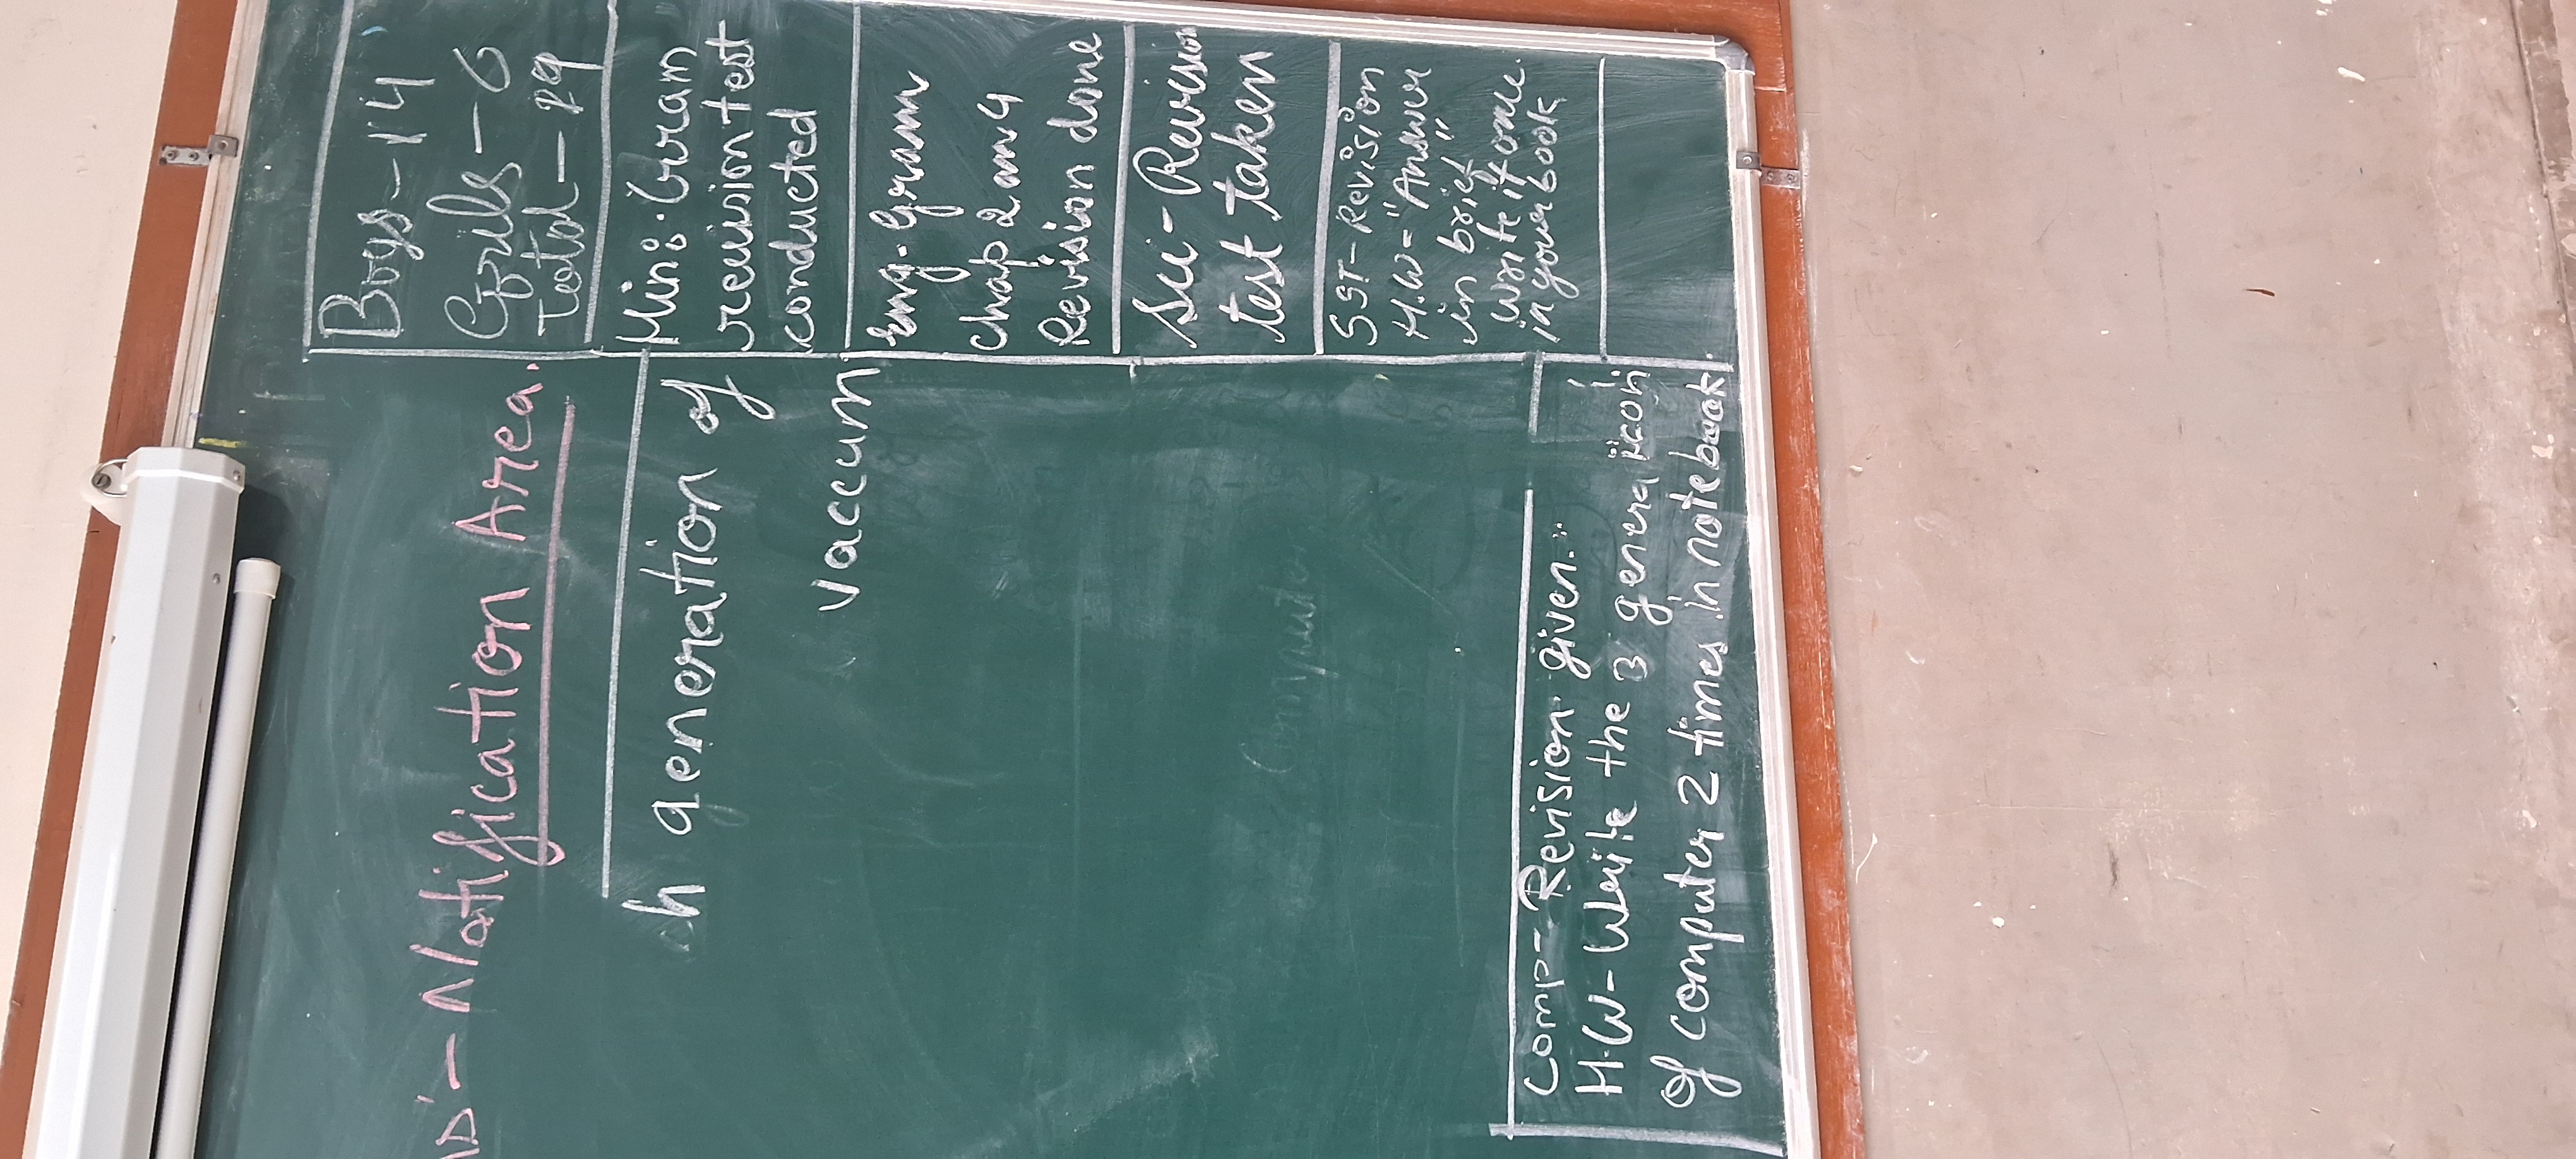 D'- Notification Area.
h generation of
vaccum
Computer
Comp- Revision given.
H.W- Write the 3 generation
of computer 2 times in notebook.
Boys - 14
Girls - 6
Total - 19
Hin: Gram
revision test
conducted
Eng. Gram
Chap 2 an 4
Revision done
Sci - Revision
test taken
SST- Revision
H.W= "Answer
in brief"
write it once.
in your book